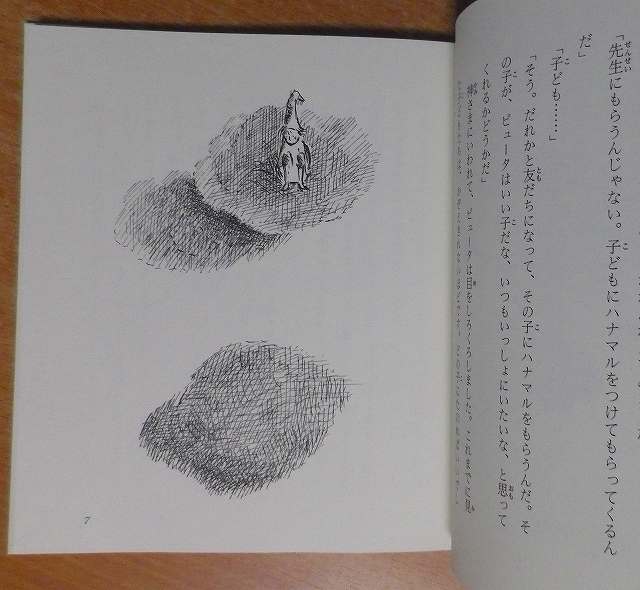 「先生にもらうんじゃない。子どもにハナマルをつけてもらってくるん
だ」
「子ども……」
「そう。だれかと友だちになって、その子にハナマルをもらうんだ。そ
の子が、ピュータはいい子だな、いつもいっしょにいたいな、と思って
くれるかどうかだ」
神さまにいわれて、ピュータは目をしろくろしました。これまでに見
7